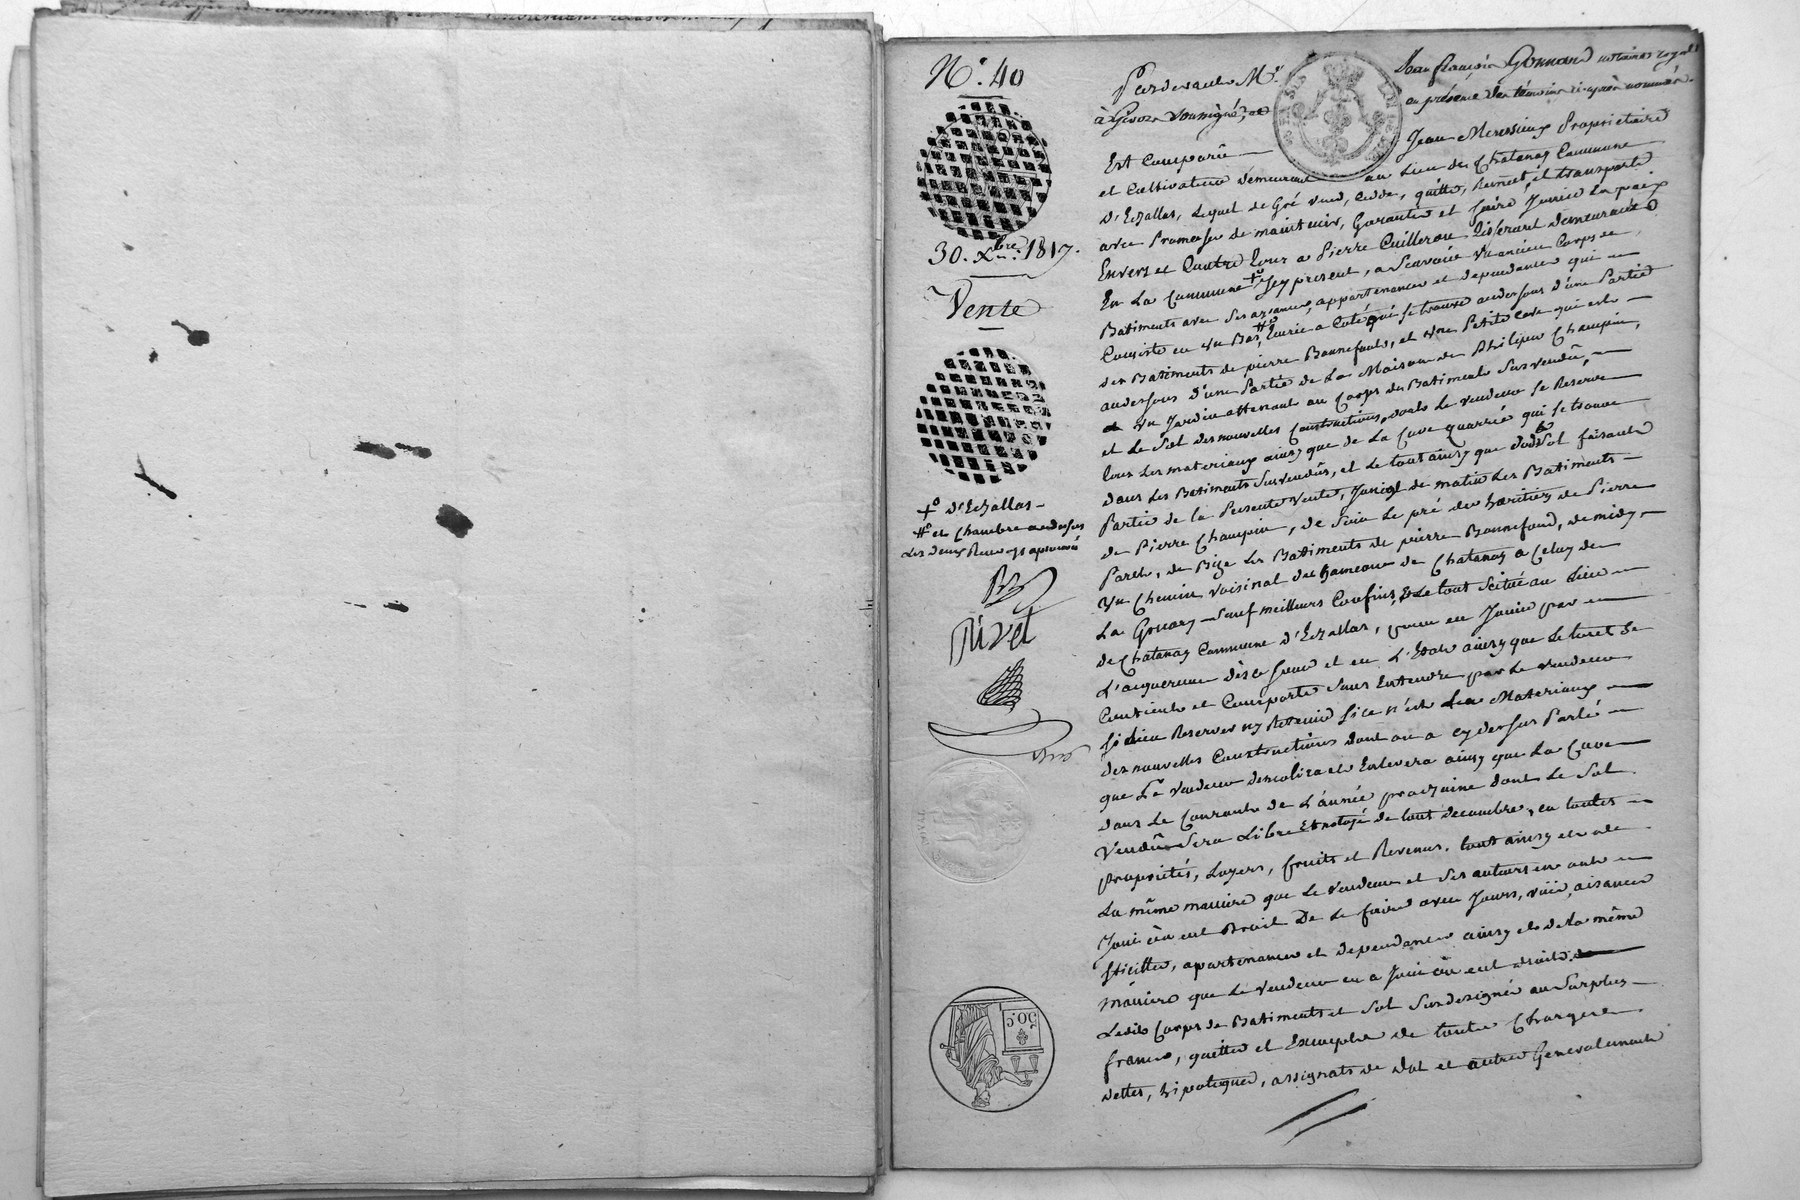 N.° 40
30. Xbre. 1817.
Vente
+° d'Echallas -
#° et Chambre au dessus
Les deux Renvoys aprouvés
Rivet
50.C
Pardevant M.e Jean françois Gonnard nottaire royal
à Givors soussigné, et en présence des témoins ci-après nommés.
Est Comparu Jean Meyssieux Propriétaire
et Cultivateur demeurant au Lieu de Chatanay Commune
D'Echallas, Lequel de Gré vend, cedde, quitte, Remet, et transporte
avec Promesse de maintenir, Garantir et faire Jouir En paix
Envers et Contre tous a Pierre Cuilleron Tisserand demeurant
En La Commune +° Icy present, a Scavoir un ancien Corps de
Batiments avec ses aysances, appartenances et dependances qui
Consiste en un Bas, #° Ecurie a Coté qui se trouve au dessous d'une Partie
des Batiments de pierre Bonnefond, et une Petite cave qui est
au dessous d'une Partie de La Maison de Philipe Champin,
et un Jardin attenant au Corps de Batiments Susvendû,
et Le Sol des nouvelles Constructions, dont Le vendeur se Reserve
tous Les materiaux ainsy que de La Cuve quarrée qui se trouve
dans Les Batiments Susvendûs, et Le tout ainsy que dudit Sol faisant
Partie de la Presente Vente, Joint de matin Les Batiments
de Pierre Champin, de Soir Le pré des heritiers de Pierre
Paret, de Bize Les Batiments de pierre Bonnefond, de midy,
Un Chemin voisinal du hameau de Chatanay a Celuy de
La Gonary Sauf meilleurs Confins, Et Le tout Scitué au Lieu
de Chatanay Commune d'Echallas, pour en Jouir par
L'acquereur dès ce Jour et en L'Etat ainsy que Le tout Se
Contient et Comporte Sans Entendre par Le vendeur
En Rien Reserver ny Retenir Si ce n'est Les Materiaux
des nouvelles Constructions dont on a cy dessus Parlé
que Le Vendeur demolira et Enlevera ainsy que La Cuve
dans Le Courant de L'année prochaine dont Le Sol
Vendû Sera Libre Et netoyé de tout decombre, en toutes
propriétés, Loyers, fruits et Revenus, tout ainsy et de
La même maniere que Le Vendeur et Ses auteurs en ont
Joui où eut Droit De Le faire avec Jours, vüe, aisances
Stieille, apartenances et dependances ainsy et de la même
maniere que Le Vendeur en a Joui où eut droit.
Ledit Corps de Batiments et Sol Susdesigné au Surplus
franc, quitte et Exempte de toutes Charges
dettes, hipoteques, assignats de dot et autres Generalement